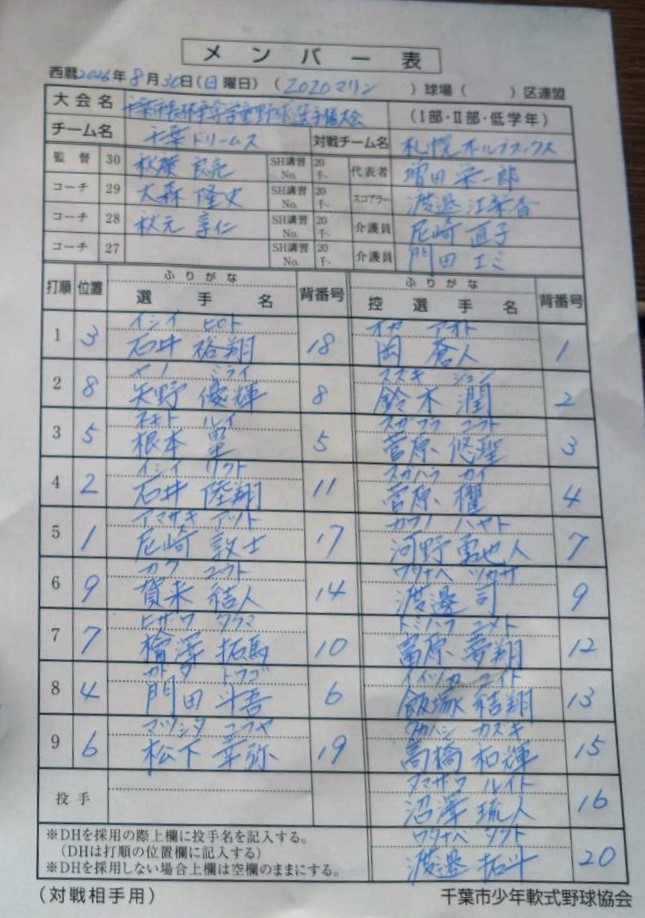 メンバー表
西暦2026年8月30日(日曜日)(2020マリン)球場( )区連盟
大会名 (I部・II部・低学年)
チーム名 千葉ドリームス 対戦チーム名 札幌ホルブラックス
監督 30 秋廣 良 SH講習No. 20千- 代表者 増田 栄一郎
コーチ 29 大森 隆史 SH講習No. 20千- スコアラー 渡邉 江
コーチ 28 秋元 享仁 SH講習No. 20千- 介護員 尼崎 直子
コーチ 27 SH講習No. 20千- 介護員 門田 エミ
打順 位置 ふりがな 選手名 背番号 ふりがな 控選手名 背番号
イシイ ヒロト オカ アオト
1 3 石井 裕翔 18 岡 蒼人 1
ヤノ ミライ スズキ ジュン
2 8 矢野 優輝 8 鈴木 潤 2
ネモト ルイ スガワラ ユウト
3 5 根本 塁 5 菅原 悠聖 3
イシイ リクト スガハラ カイ
4 2 石井 陸翔 11 菅原 櫂 4
アマザキ アツト カワノ ハヤト
5 1 尼崎 敦士 17 河野 人 7
カク ユウト ワタナベ ツカサ
6 9 賀来 結人 14 渡邉 司 9
ヒザワ タクマ トミハラ ユメト
7 7 檜澤 拓馬 10 冨原 夢翔 12
カドタ トウゴ イイヅカ ユイト
8 4 門田 斗吾 6 飯塚 結翔 13
マツシタ ユウヤ タカハシ カズキ
9 6 松下 幸弥 19 高橋 和輝 15
投手 ルイト
沼澤 琉人 16
※DHを採用の際上欄に投手名を記入する。 ワタナベ タクト
(DHは打順の位置欄に記入する) 渡邉 拓斗 20
※DHを採用しない場合上欄は空欄のままにする。
(対戦相手用) 千葉市少年軟式野球協会